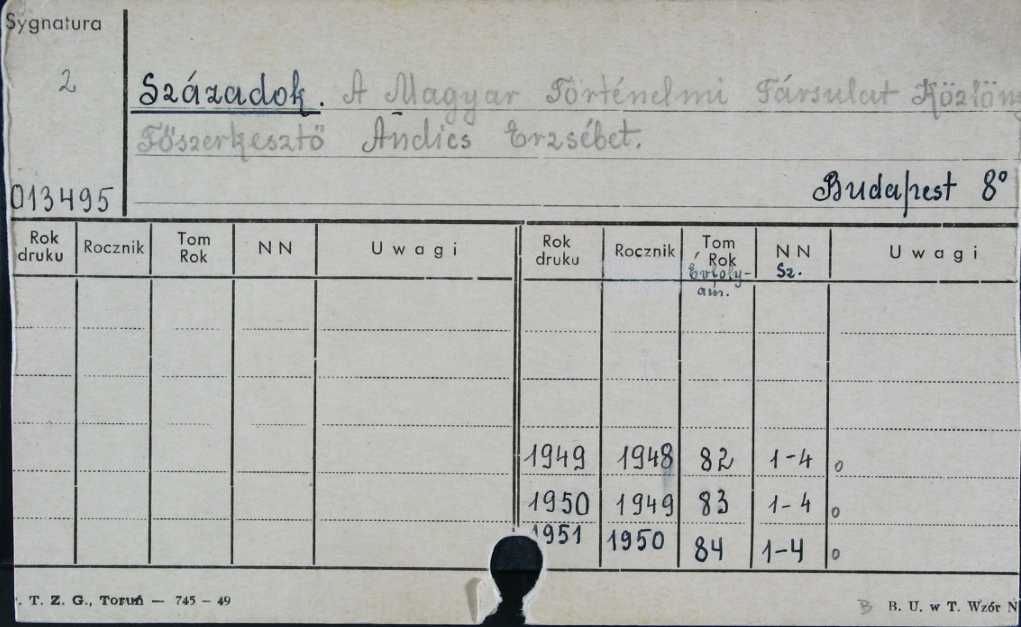 Sygnatura
2
Századok. A Magyar Történelmi Társulat Közlön
Főszerkesztő Andics Erzsébet.
013495
Budapest 8°
Rok druku Rocznik Tom Rok NN Uwagi Rok druku Rocznik Tom Rok NN Uwagi
Évfoly- Sz.
am.
1949 1948 82 1-4 o
1950 1949 83 1-4 o
1951 1950 84 1-4 o
. T. Z. G., Toruń — 745 - 49
B B. U. w T. Wzór N